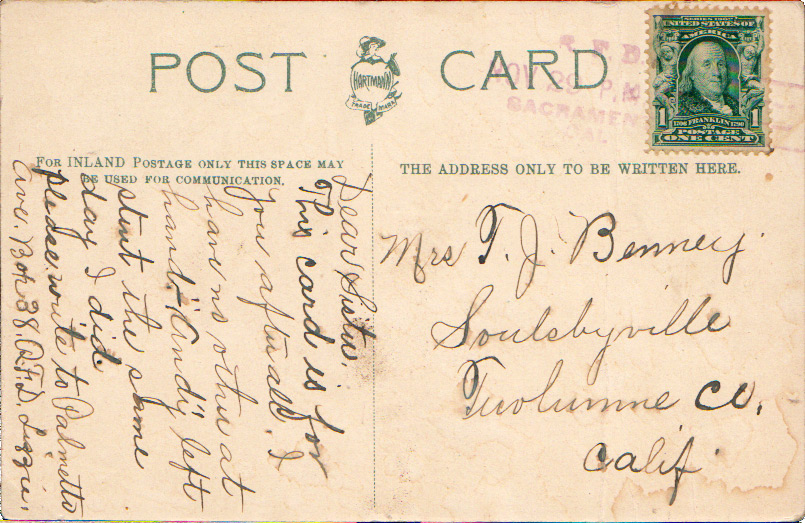 POST CARD
HARTMANN
TRADE MARK
R.F.D.
NOV 29 P.M.
SACRAMEN
CAL
SERIES 1902
UNITED STATES OF
AMERICA
1 1
1706 FRANKLIN 1790
POSTAGE
ONE CENT
FOR INLAND POSTAGE ONLY THIS SPACE MAY
BE USED FOR COMMUNICATION.
THE ADDRESS ONLY TO BE WRITTEN HERE.
Dear Sister.
This card is for
you after all. I
have no other at
hand. "Andy" left
the same
day I did.
please write to Palmetto
Ave. Box 38. R.F.D. Lizzie.
Mrs T. J. Benney.
Soulsbyville
Tuolumne Co.
Calif.